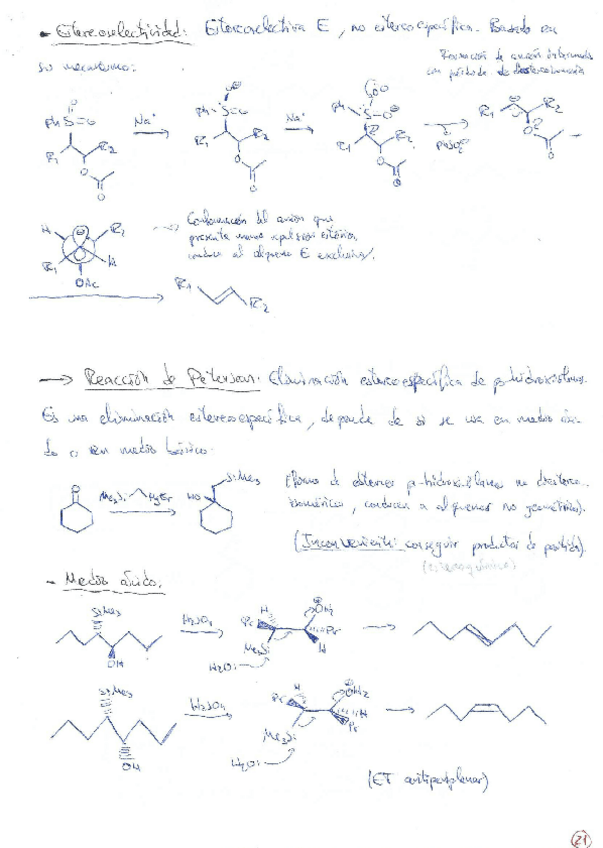 - Estereoselectividad: Estereoselectiva E, no estereoespecífica. Basado en
su mecanismo:
Formación de anión intermedio
con pérdida de estereoquímica
Ph-S=O
R1
R2
O
O
Na•
Ph-S=O
R1
R2
O
O
Na•
Ph-S-O
R1
R2
O
O
PhSO2
R1
R2
O
O
H
R2
R1
H
OAc
Conformación del anión que
presenta menos repulsión estérica,
conduce al alqueno E exclusiv.
R1
R2
→ Reacción de Peterson: Eliminación estereoespecífica de β-hidroxisilanos.
Es una eliminación estereoespecífica, depende de si se usa en medio áci-
do o en medio básico.
O
Me3Si MgBr
HO
SiMe3
de obtener β-hidroxisilanos no diastereo-
isoméricos, conducen a alquenos no geométricos).
(Inconveniente: conseguir productos de partida).
(estereoquímica)
- Medio ácido.
SiMe3
OH
H2SO4
H
Pr
Me3Si
OH2
Pr
H
H2O:
SiMe3
OH
H2SO4
Pr
H
Me3Si
OH2
H
Pr
H2O:
(ET antiperiplanar)
21